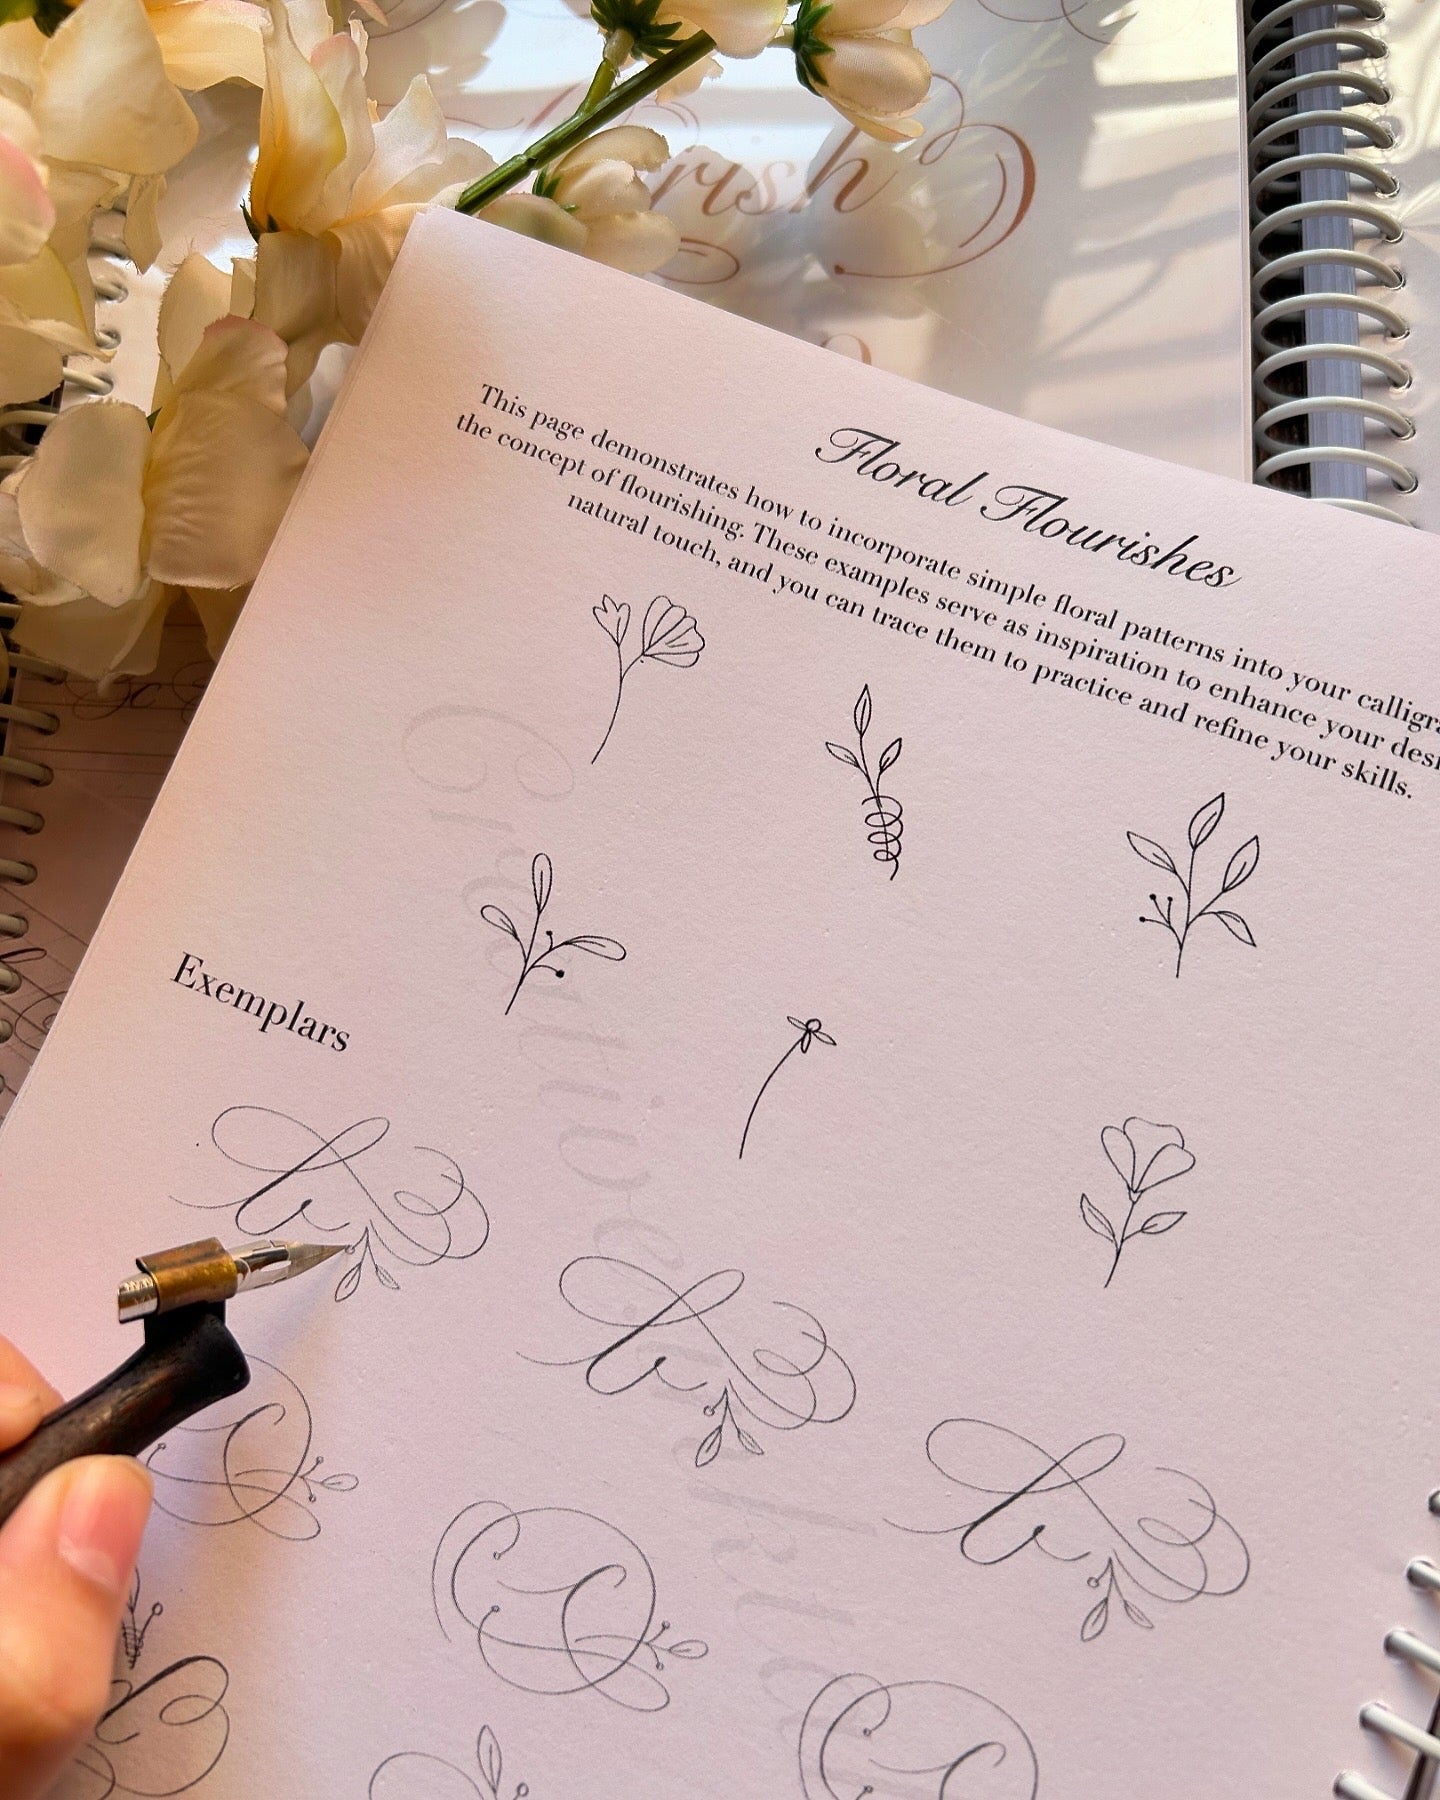 Floral Flourishes
This page demonstrates how to incorporate simple floral patterns into your
the concept of flourishing. These examples serve as inspiration to enhance your
natural touch, and you can trace them to practice and refine your skills.
Exemplars